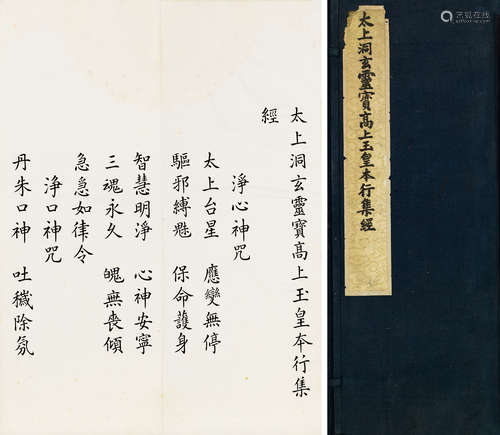 太上洞玄靈寶高上玉皇本行集
經
淨心神咒
太上台星　應變無停
驅邪縛魅　保命護身
智慧明淨　心神安寧
三魂永久　魄無喪傾
急急如律令
淨口神咒
丹朱口神　吐穢除氛
太上洞玄靈寶高上玉皇本行集經